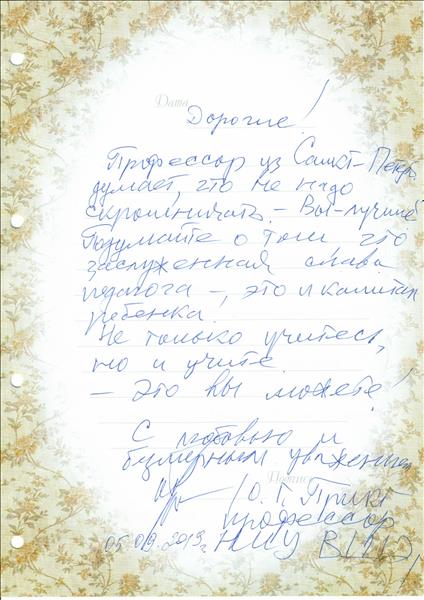 Дата
Дорогие!
Профессор из Санкт-Петр.
думает, что не надо
скромничать. - Вы - лучшие
Подумайте о том, что
заслуженная слава
педагога -, это и капитал
ребенка.
Не только учитесь,
но и учите.
- Это вы можете!
С любовью и
безмерным уважением
Подпись
/О. Г. Прикт
профессор
05.09.2019г НИУ ВШЭ!